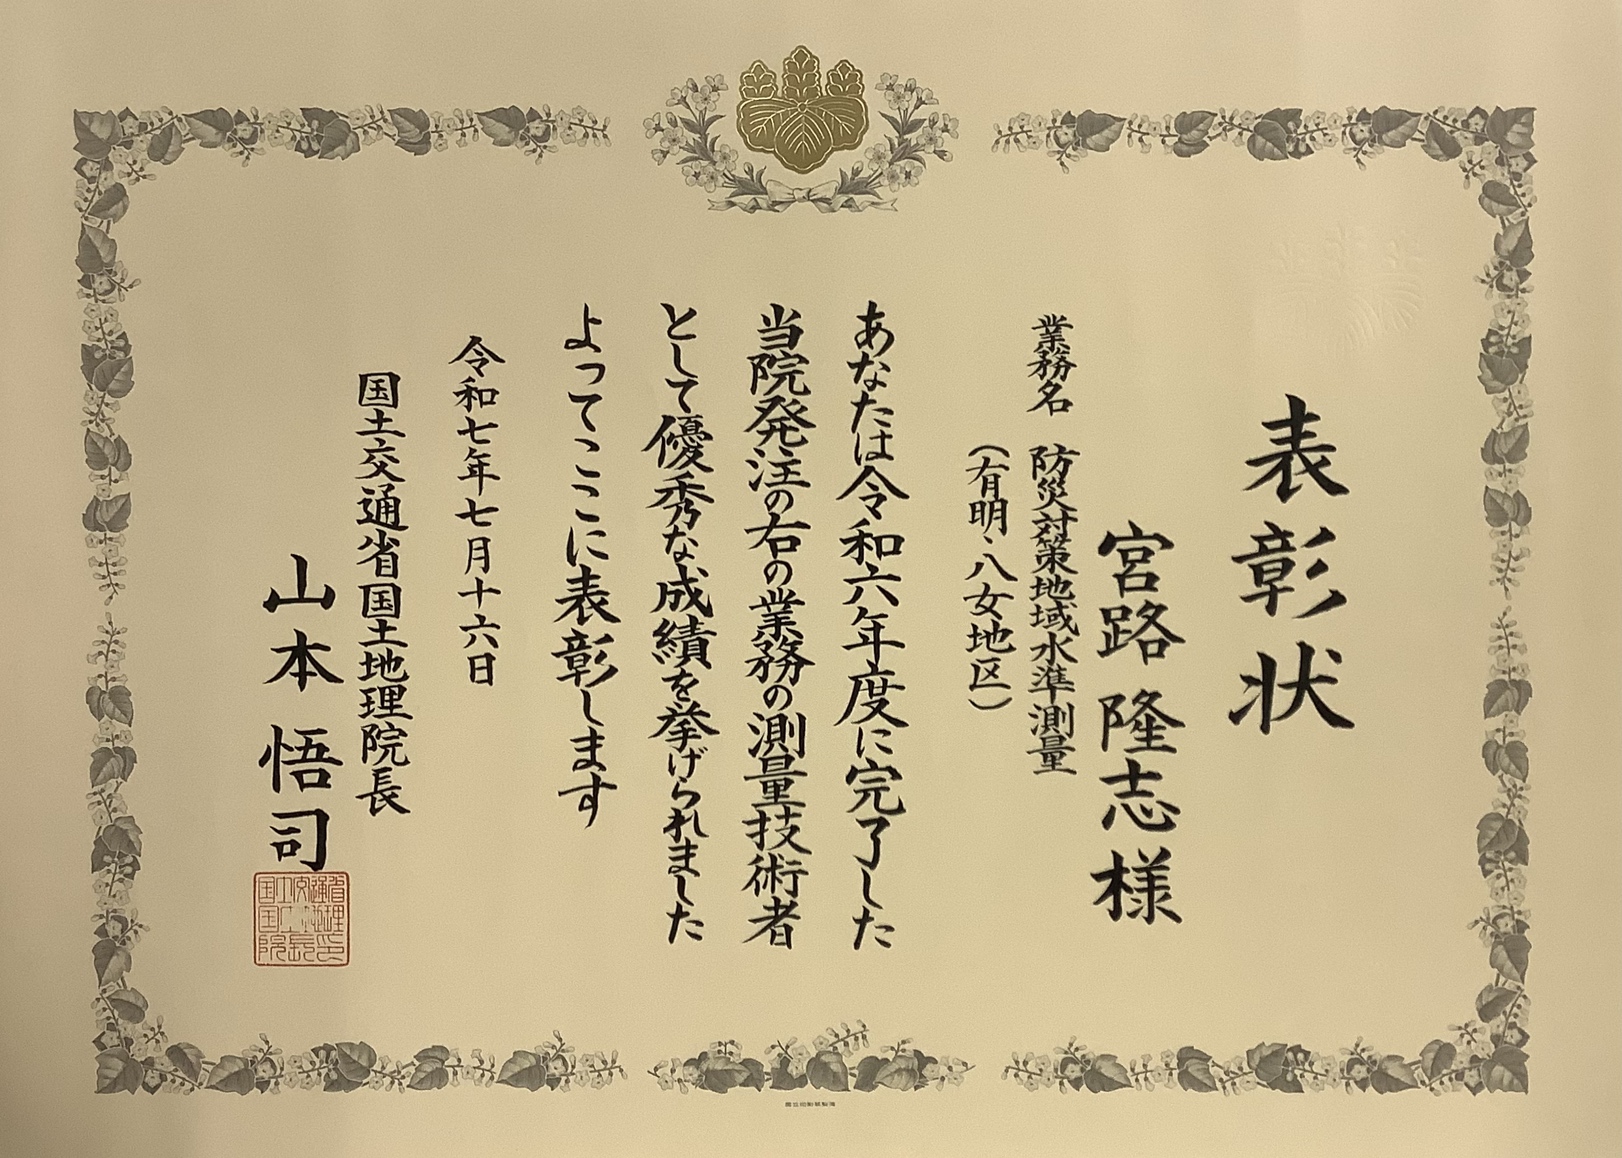 表彰状
宮路 隆志 様
業務名 防災対策地域水準測量
(有明・八女地区)
あなたは令和六年度に完了した
当院発注の右の業務の測量技術者
として優秀な成績を挙げられました
よってここに表彰します
令和七年七月十六日
国土交通省国土地理院長
山本 悟司